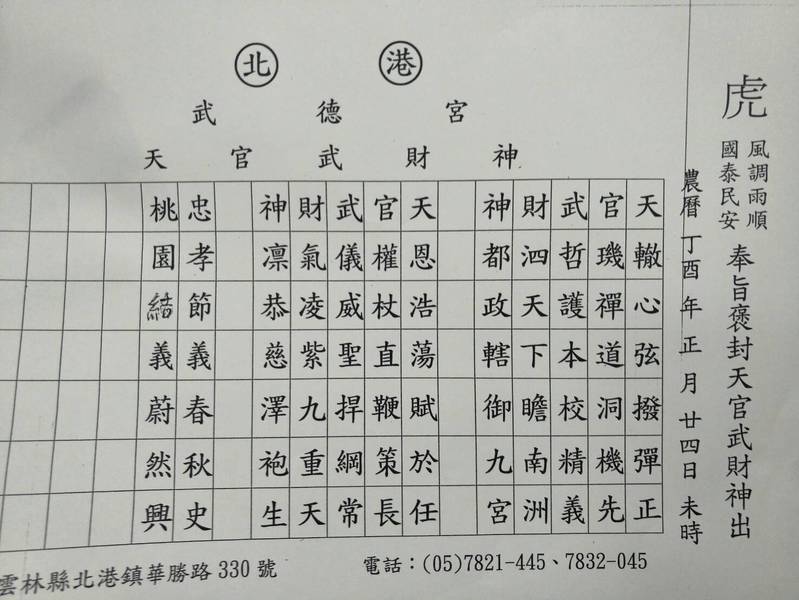 北港
武德宮
天官武財神
虎
風調雨順
國泰民安
奉旨褒封天官武財神出
農曆丁酉年正月廿四日未時
天轍心弦撥彈正
官璣禪道洞機先
武哲護本校精義
財泗天下瞻南洲
神都政轄御九宮
天恩浩蕩賦於任
官權杖直鞭策長
武儀威聖捍綱常
財氣凌紫九重天
神凜恭慈澤袍生
忠孝節義春秋史
桃園結義蔚然興
電話：(05)7821-445、7832-045
雲林縣北港鎮華勝路330號